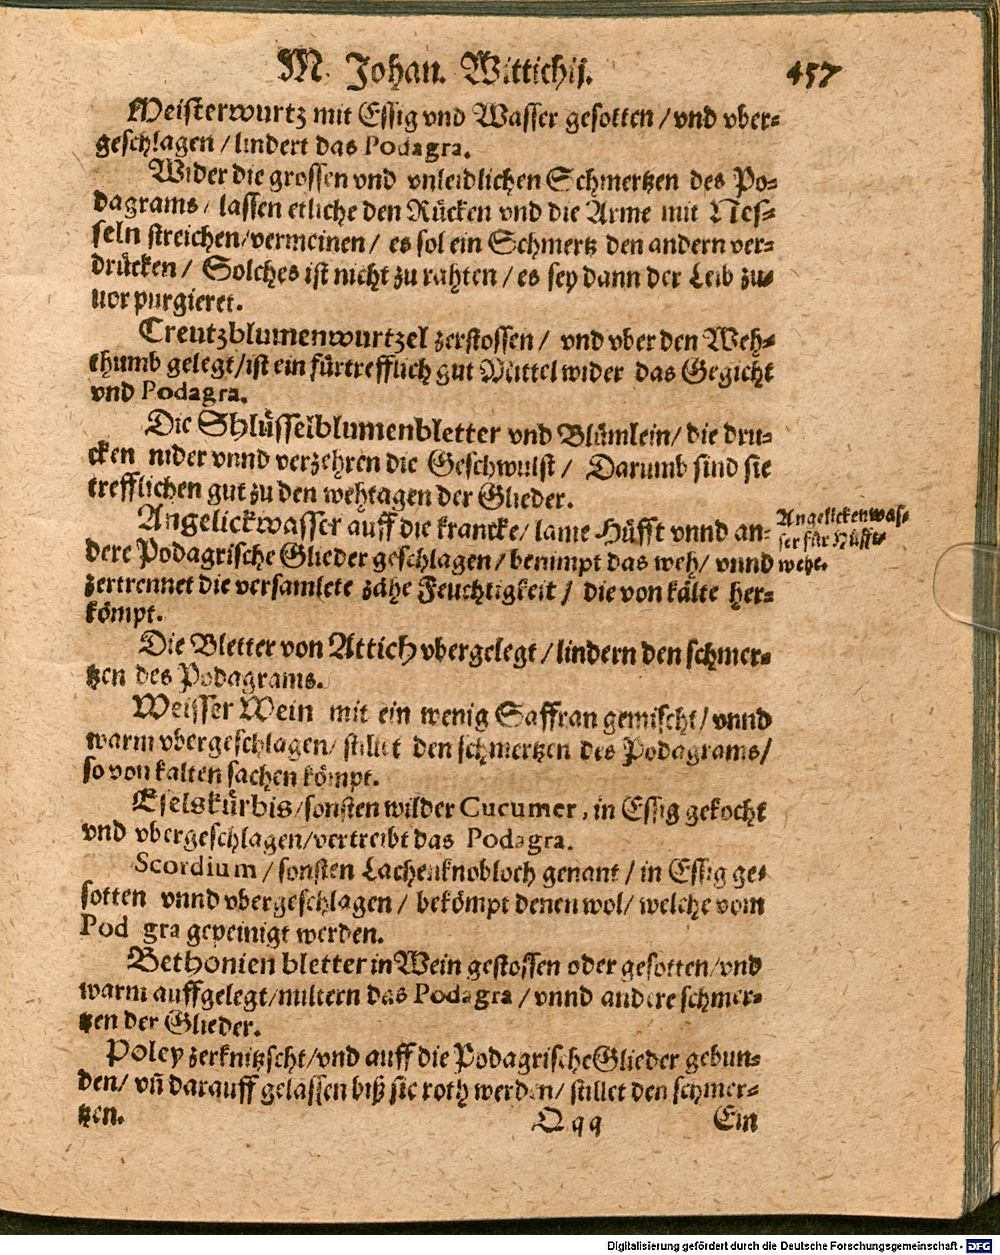 M. Johan. Wittichij. 457
Meisterwurtz mit Essig vnd Wasser gesotten / vnd vber-
geschlagen / lindert das Podagra.
Wider die grossen vnd vnleidlichen Schmertzen des Po-
dagrams / lassen etliche den Rücken vnd die Arme mit Nes-
seln streichen / vermeinen / es sol ein Schmertz den andern ver-
drücken / Solches ist nicht zu rahten / es sey dann der Leib zu-
uor purgieret.
Creutzblumenwurtzel zerstossen / vnd vber den Weh-
thumb gelegt / ist ein fürtrefflich gut Mittel wider das Gegicht
vnd Podagra.
Die Shlüsselblumenbletter vnd Blümlein / die dru-
cken nider vnnd verzehren die Geschwulst / Darumb sind sie
trefflichen gut zu den wehtagen der Glieder.
Angelickwasser auff die krancke / lame Hüfft vnnd an-
dere Podagrische Glieder geschlagen / benimpt das weh / vnnd
zertrennet die versamlete zähe Feuchtigkeit / die von kälte her-
kömpt.
Angelickenwas-
ser für Hüfft-
wehe.
Die Bletter von Attich vbergelegt / lindern den schmer-
tzen des Podagrams.
Weisser Wein mit ein wenig Saffran gemischt / vnnd
warm vbergeschlagen / stillet den schmertzen des Podagrams /
so von kalten sachen kömpt.
Eselskürbis / sonsten wilder Cucumer, in Essig gekocht
vnd vbergeschlagen / vertreibt das Podagra.
Scordium / sonsten Lachenknobloch genant / in Essig ge-
sotten vnnd vbergeschlagen / bekömpt denen wol / welche vom
Podagra gepeinigt werden.
Bethonien bletter in Wein gestossen oder gesotten / vnd
warm auffgelegt / miltern das Podagra / vnnd andere schmer-
tzen der Glieder.
Poley zerknitzscht / vnd auff die Podagrische Glieder gebun-
den / vñ darauff gelassen biß sie roth werden / stillet den schmer-
tzen.
Qqq Ein
Digitalisierung gefördert durch die Deutsche Forschungsgemeinschaft - DFG